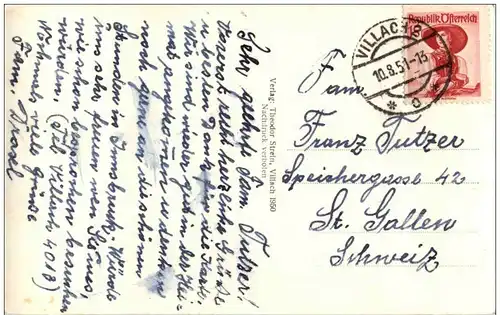 Sehr geehrte Fam. Tutzer!
Vorerst recht herzliche Grüße
u. besten Dank für die Karte.
Wir sind wieder gut in der Hei-
mat angekommen u. denken
noch gerne an die schönen
Stunden in Innsbruck. Würde
uns sehr freuen wenn Sie uns
wie schon besprochen besuchen
würden. (Tel. Villach 4013)
Nochmals viele Grüsse
Fam. Drosl
Verlag: Theodor Strein, Villach 1950
Nachdruck verboten
Republik Österreich
VILLACH 2
10.8.51-13
* c *
Fam.
Franz Tutzer
Speichergasse 42
St. Gallen
Schweiz